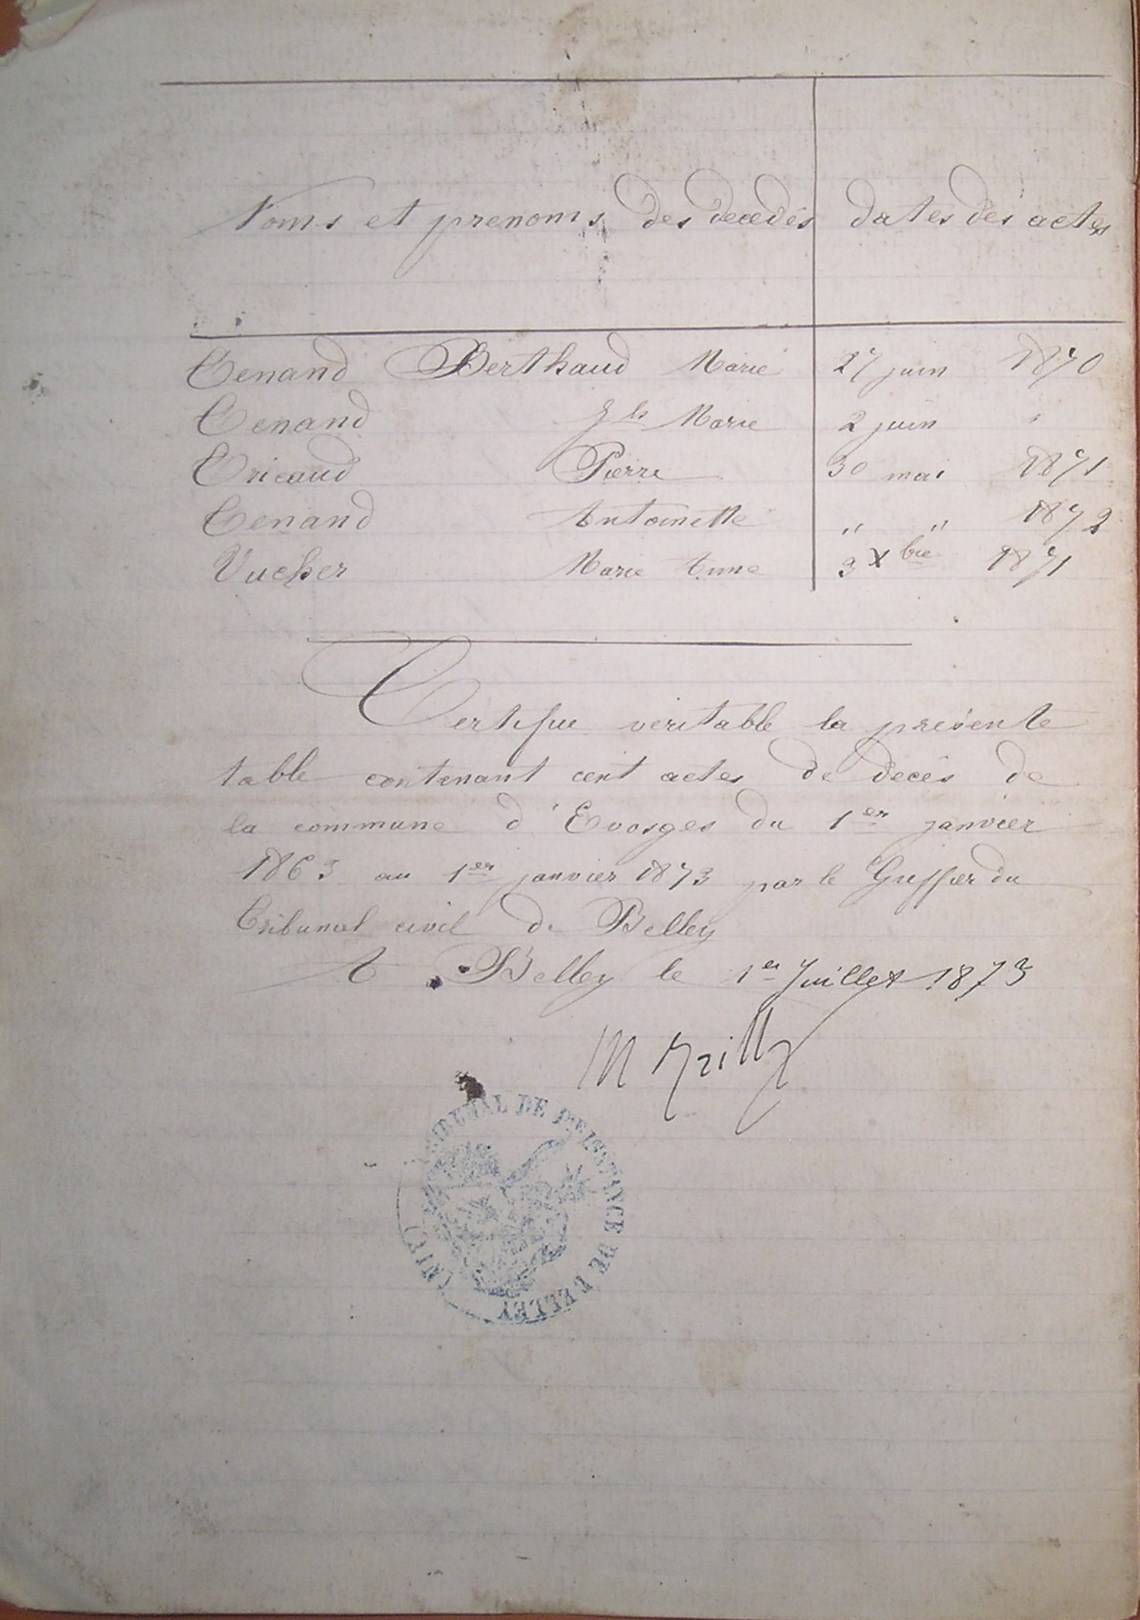 Noms et prenoms des décédés dates des actes
Tenand Berthaud Marie 27 juin 1870
Tenand Marie 2 juin "
Tricaud Pierre 30 mai 1871
Tenand Antoinette " " 1872
Vucher Marie Anne 3 Xbre 1871
Certifié véritable la présente
table contenant cent actes de décès de
la commune d'Evosges du 1er janvier
1863 au 1er janvier 1873 par le Greffier du
Tribunal civil de Belley
A Belley le 1er Juillet 1873
TRIBUNAL DE 1re INSTANCE DE BELLEY (AIN)